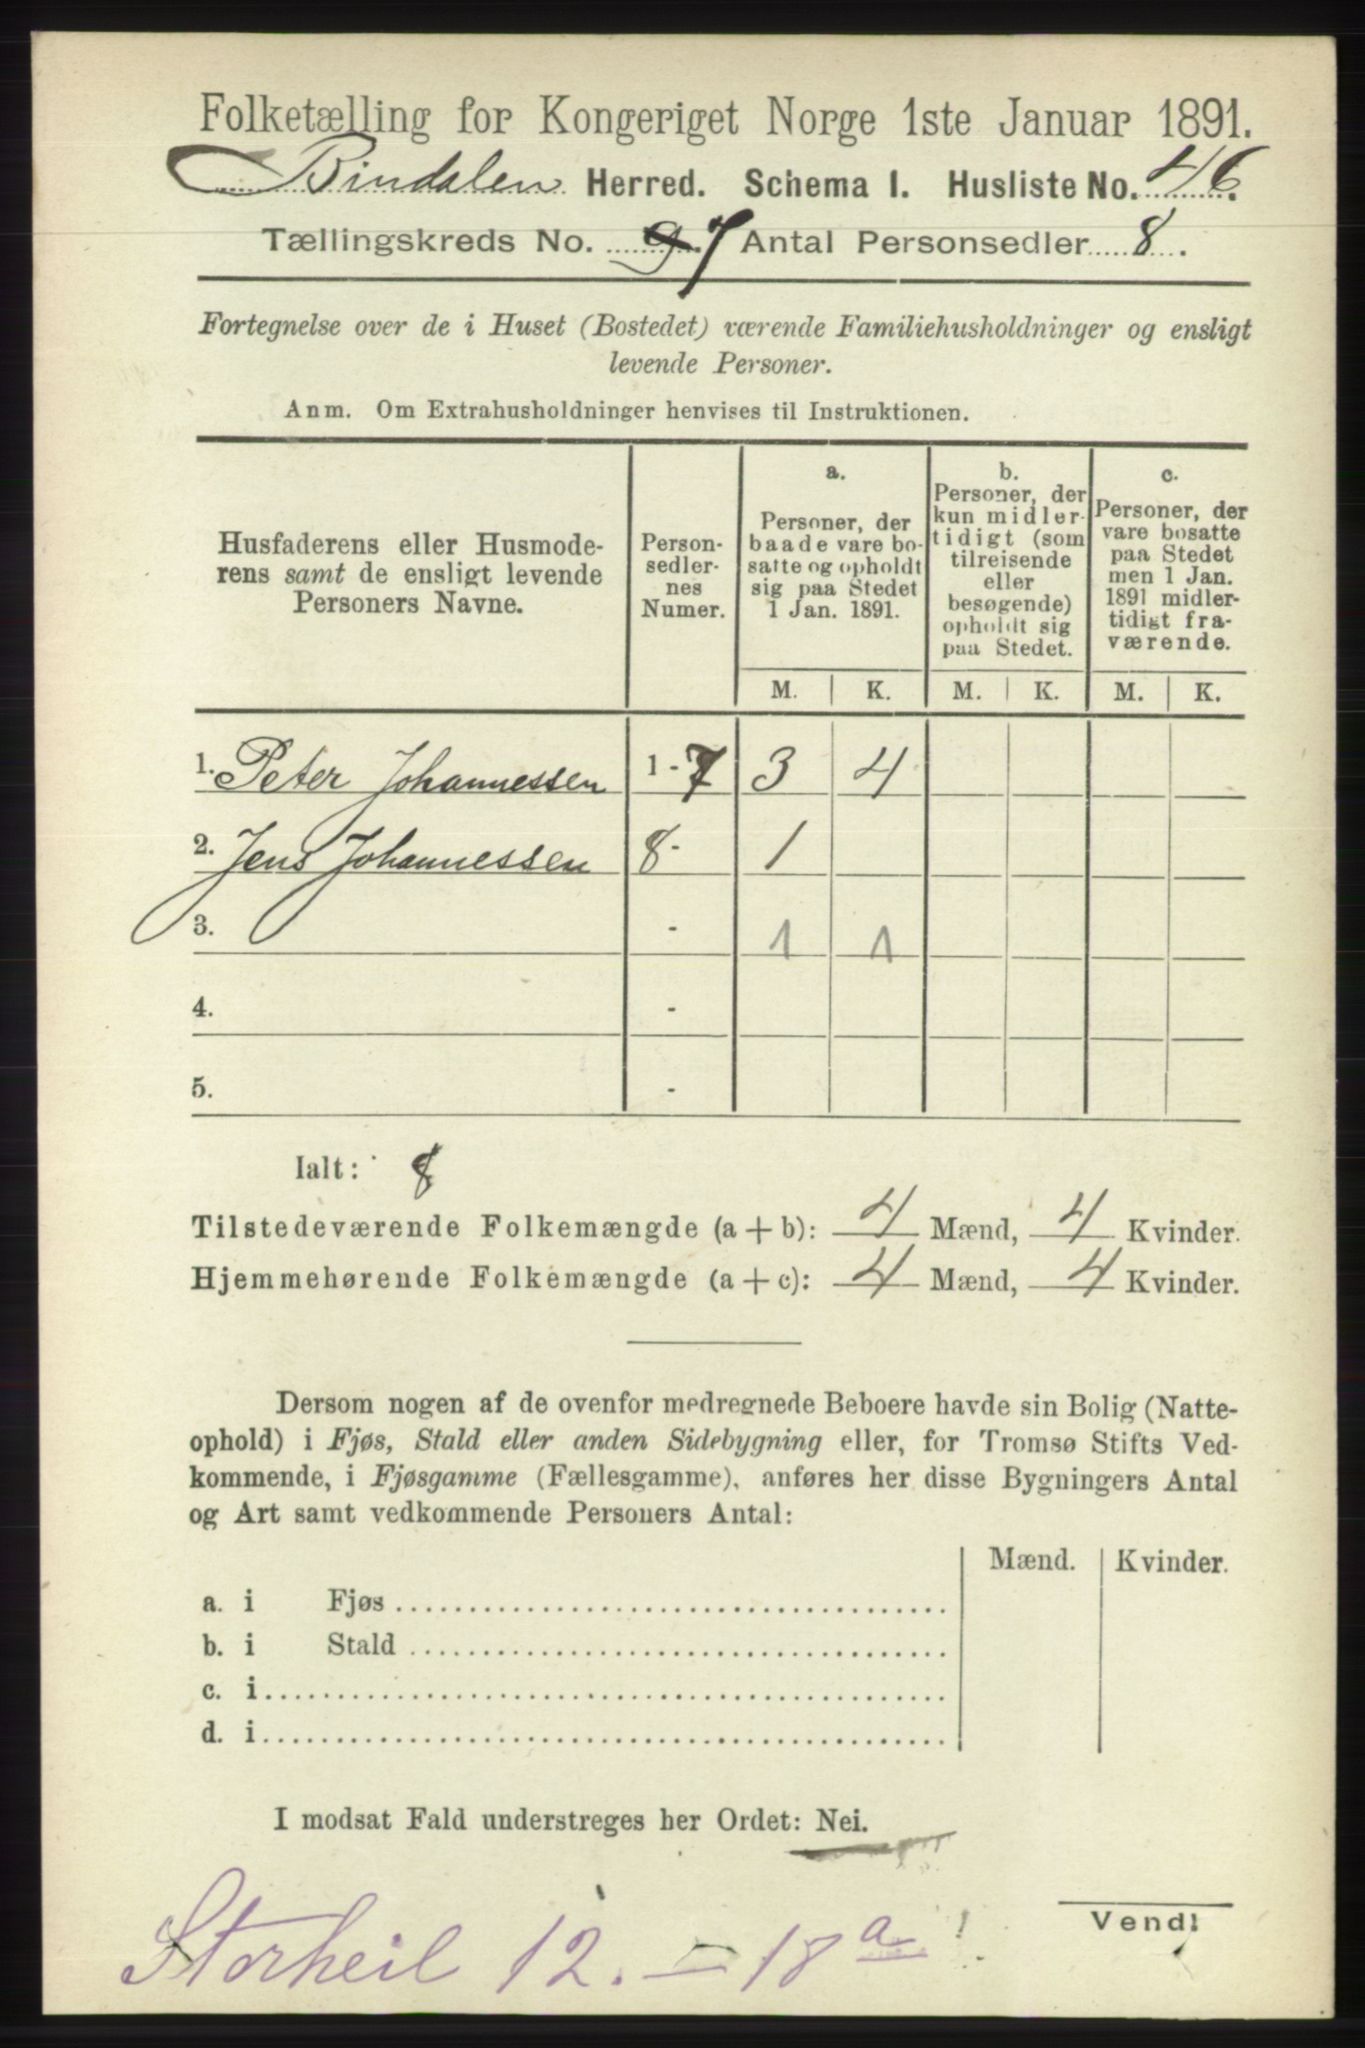 Folketælling for Kongeriget Norge 1ste Januar 1891.
Bindalen Herred. Schema I. Husliste No. 46.
Tællingskreds No. 9 7 Antal Personsedler 8.
Fortegnelse over de i Huset (Bostedet) værende Familiehusholdninger og ensligt
levende Personer.
Anm. Om Extrahusholdninger henvises til Instruktionen.
Husfaderens eller Husmode-
rens samt de ensligt levende
Personers Navne.
Person-
sedler-
nes
Numer.
a.
Personer, der
baade vare bo-
satte og opholdt
sig paa Stedet
1 Jan. 1891.
b.
Personer, der
kun midler-
tidigt (som
tilreisende
eller
besøgende)
opholdt sig
paa Stedet.
c.
Personer, der
vare bosatte
paa Stedet
men 1 Jan.
1891 midler-
tidigt fra-
værende.
M. K. M. K. M. K.
1. Peter Johannessen 1 - 7 3 4
2. Jens Johannessen 8 - 1
3. - 1 1
4. -
5. -
Ialt: 8
Tilstedeværende Folkemængde (a + b): 4 Mænd, 4 Kvinder.
Hjemmehørende Folkemængde (a + c): 4 Mænd, 4 Kvinder.
Dersom nogen af de ovenfor medregnede Beboere havde sin Bolig (Natte-
ophold) i Fjøs, Stald eller anden Sidebygning eller, for Tromsø Stifts Ved-
kommende, i Fjøsgamme (Fællesgamme), anføres her disse Bygningers Antal
og Art samt vedkommende Personers Antal:
Mænd. Kvinder.
a. i Fjøs
b. i Stald
c. i
d. i
I modsat Fald understreges her Ordet: Nei.
Vend!
Storheil 12. = 18 a